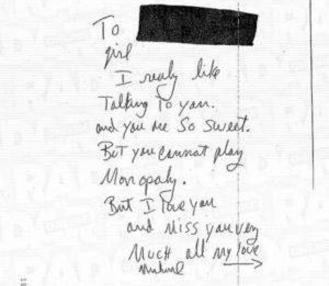 To
girl
I realy like
Talking To you.
and you are So Sweet.
But you cannot play
Monopoly.
But I love you
and Miss you very
Much all my love